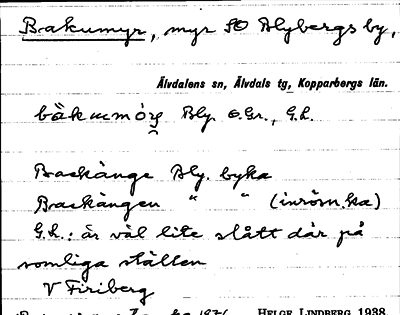 Bakumyr, myr SO Blybergs by,
Älvdalens sn, Älvdals tg, Kopparbergs län.
Bly. O.Gr., G.L.
Backänge Bly. byka
Backängen " " (inröm.ka)
G.L.: är väl lite slått där på
somliga ställen
V Firiberg
HELGE LINDBERG 1938.